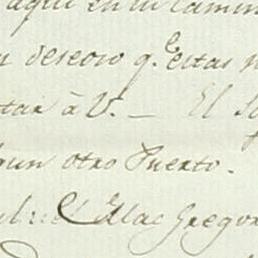 aqui en su camin
deseoso q.e estas
tar à V. — El
gun otro Puerto.
Mac Gregor